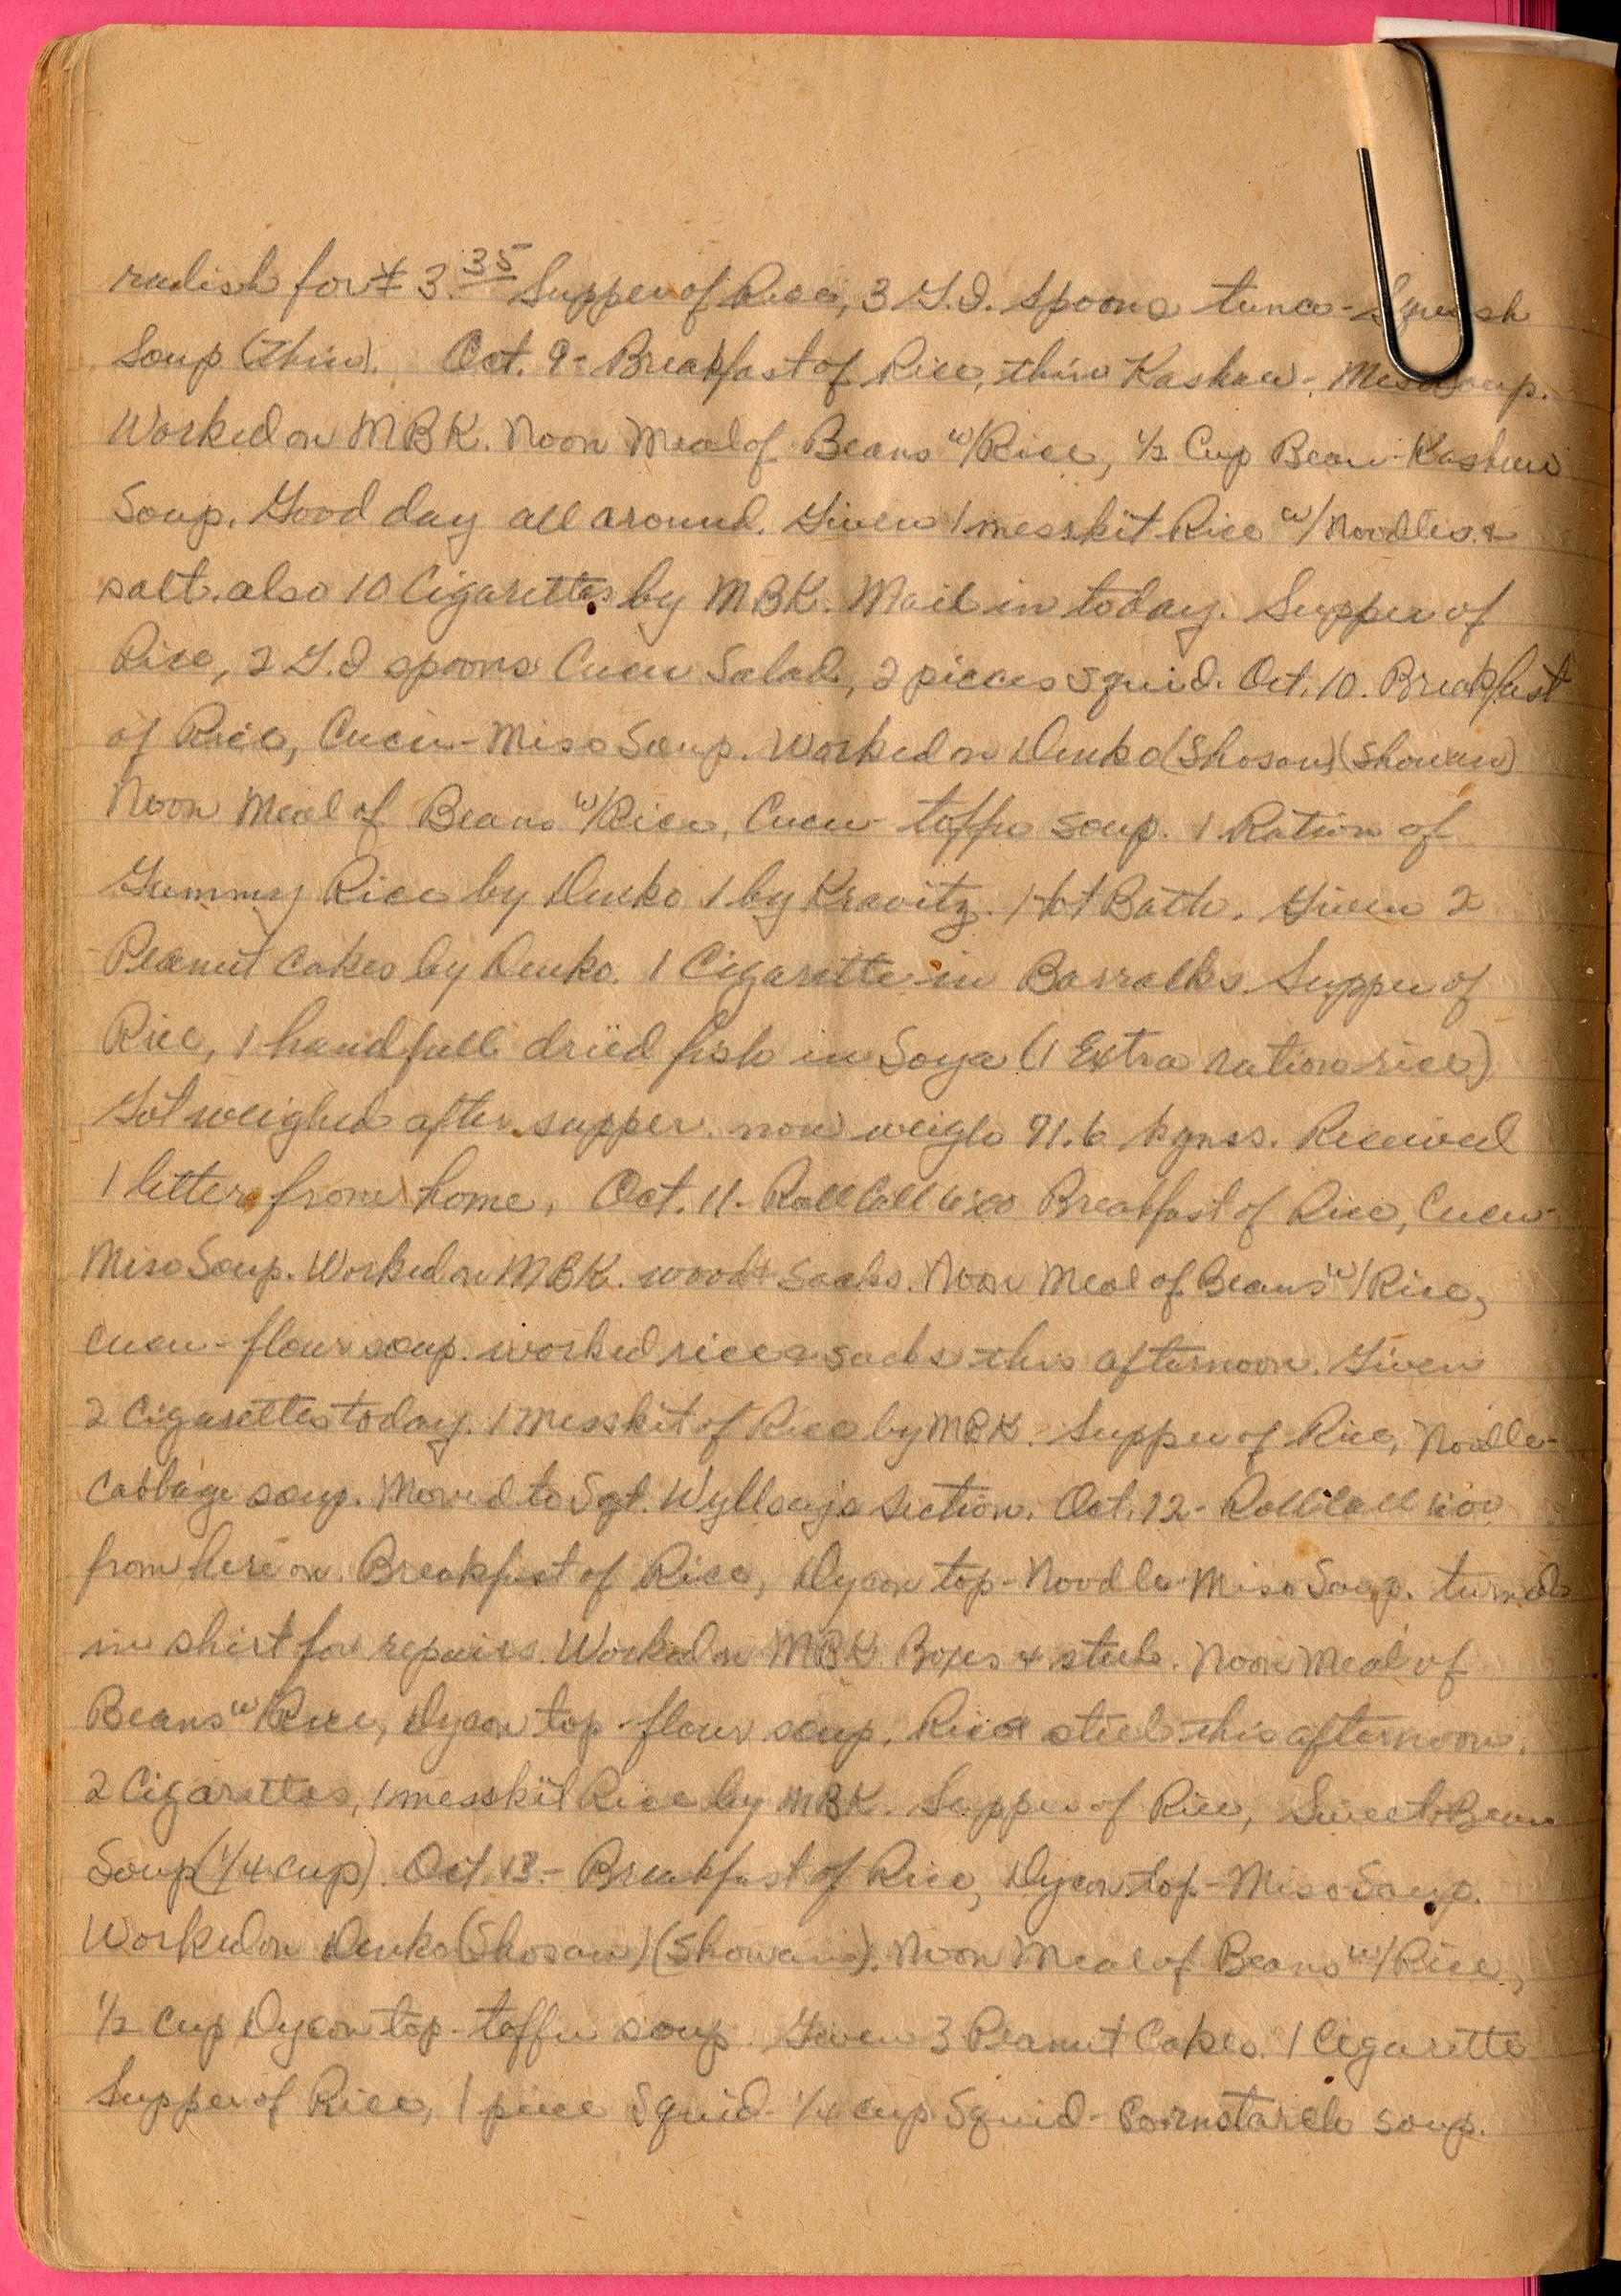 radish for ¥ 3.35 Supper of Rice, 3 G.I. spoons tuna-Squash
Soup (thin). Oct. 9- Breakfast of Rice, thin Kashaw-Miso Soup.
Worked on MBK. Noon Meal of Beans w/Rice, 1/2 Cup Bean-Kashaw
Soup. Good day all around. Given 1 messkit Rice w/Noodles &
salt. also 10 Cigarettes by MBK. Mail in today. Supper of
Rice, 2 G.I spoons Cucu Salad, 2 pieces squid. Oct. 10. Breakfast
of Rice, Cucu-Miso Soup. Worked on Denko (Shosan) (Showan)
Noon Meal of Beans w/Rice, Cucu-toffu soup. 1 Ration of
Gummy Rice by Denko 1 by Kravitz. Hot Bath. Given 2
Peanut Cakes by Denko. 1 Cigarette in Barracks. Supper of
Rice, 1 handfull dried fish in Soya (1 Extra ration rice)
Got weighed after supper. now weigh 71.6 kgms. Received
1 letter from home. Oct. 11- Roll Call 6:00 Breakfast of Rice, Cucu-
Miso Soup. Worked on MBK. wood & Sacks. Noon Meal of Beans w/Rice,
cucu-flour soup. worked rice & sacks this afternoon. Given
2 Cigarettes today. 1 Messkit of Rice by MBK. Supper of Rice, Noodle-
Cabbage soup. Moved to Sgt. Section. Oct. 12- Roll Call 6:00
from here on. Breakfast of Rice, Dycon top-Noodle-Miso Soup. turned
in shirt for repairs. Worked on MBK Boxes & steel. Noon Meal of
Beans w/Rice, Dycon top-flour soup. Rice & steel this afternoon.
2 Cigarettes, 1 messkit Rice by MBK. Supper of Rice, Sweet-Bean
Soup (1/4 cup). Oct. 13.- Breakfast of Rice, Dycon top-Miso Soup.
Worked on Denko (Shosan) (Showan). Noon Meal of Beans w/Rice,
1/2 cup Dycon top-toffu soup. Given 3 Peanut Cakes. 1 Cigarette
Supper of Rice, 1 piece Squid- 1/4 cup Squid-Cornstarch soup.